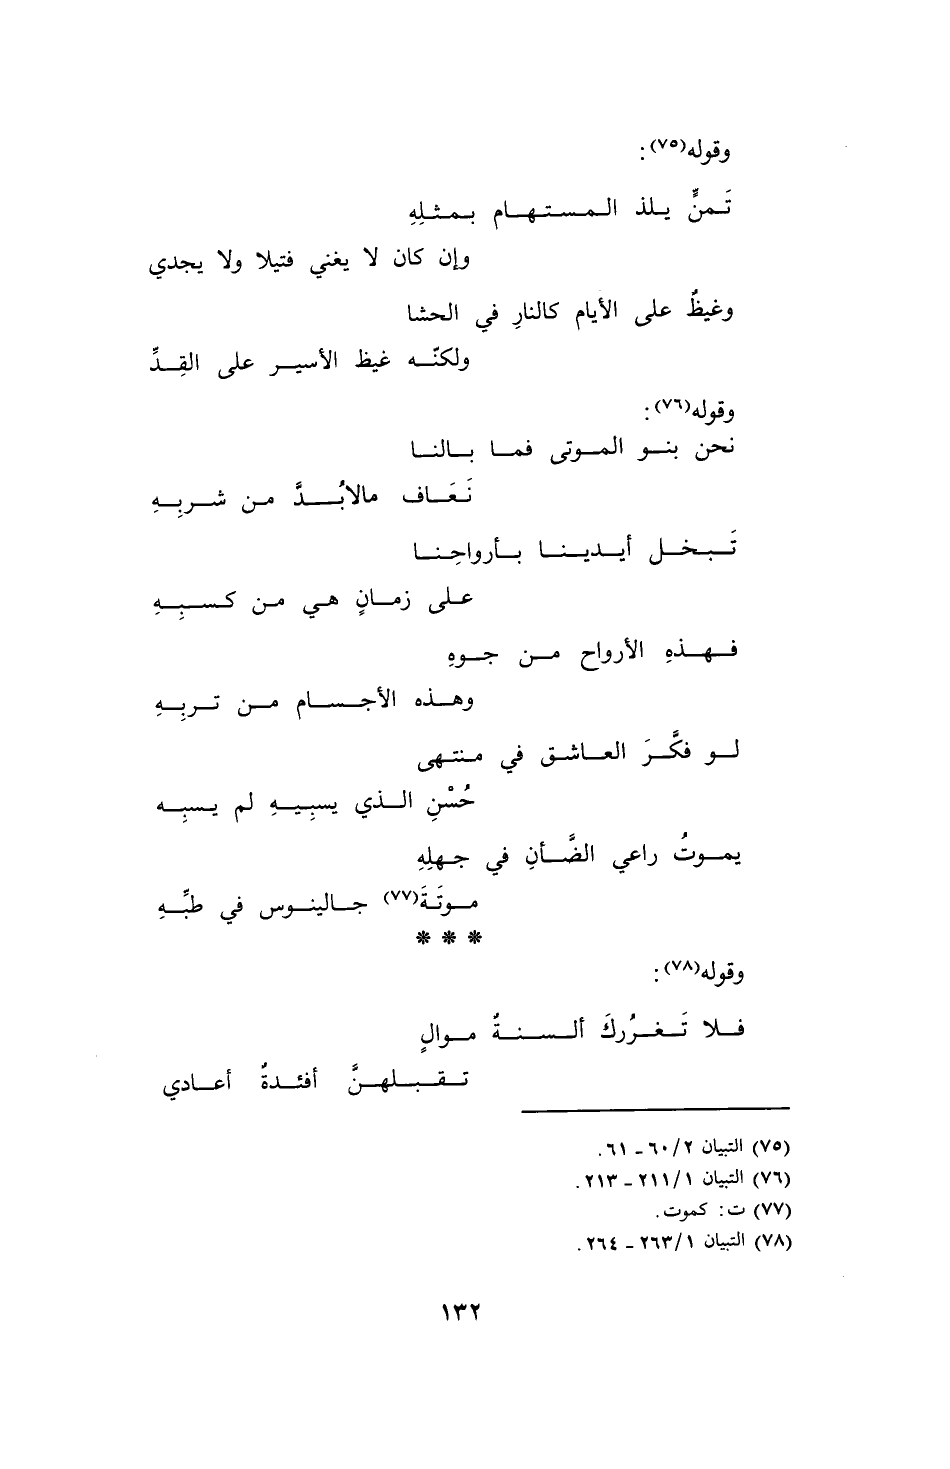 وقوله(٧٥) :
تَمنٍّ يلذ المستهام بمثلِهِ
وإن كان لا يغني فتيلا ولا يجدي
وغيظٌ على الأيام كالنارِ في الحشا
ولكنّه غيظ الأسير على القِدِّ
وقوله(٧٦) :
نحن بنو الموتى فما بالنا
نَعَاف مالابُدَّ من شربِهِ
تَبخل أيدينا بأرواحِنا
على زمانٍ هي من كسبِهِ
فهذهِ الأرواح من جوهِ
وهذه الأجسام من تربِهِ
لو فكَّرَ العاشق في منتهى
حُسْنِ الذي يسبِيهِ لم يسبِه
يموتُ راعي الضَّأنِ في جهلِهِ
موتَةَ(٧٧) جالينوس في طبِّهِ
* * *
وقوله(٧٨) :
فلا تَغرُركَ ألسنةٌ موالٍ
تقبلهنَّ أفئدةٌ أعادي
(٧٥) التبيان ٢/ ٦٠ - ٦١.
(٧٦) التبيان ١/ ٢١١ - ٢١٣.
(٧٧) ت: كموت.
(٧٨) التبيان ١/ ٢٦٣ - ٢٦٤.
١٣٢